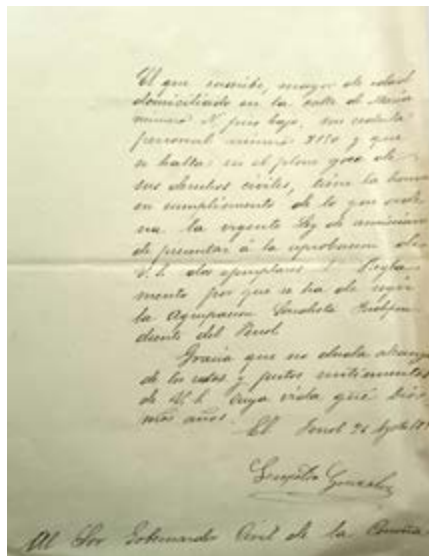 El que suscribe, mayor de edad
domiciliado en la calle de María
número piso bajo, con cedula
personal número 2150 y que
se halla en el pleno goce de
sus derechos civiles, tiene la honra
en cumplimiento de lo que orde-
na la vigente Ley de
de presentar á la aprobacion de
V.S. dos ejemplares Regla-
mento por que se ha de regir
la Agrupacion Socialista Indepen-
diente del Ferrol
Gracia que no duda alcanzar
de los rectos y justos sentimientos
de V.S. cuya vida gue Dios
m̃os años.
El Ferrol 26 Agosto
González
Al Sor Gobernador Civil de la Coruña